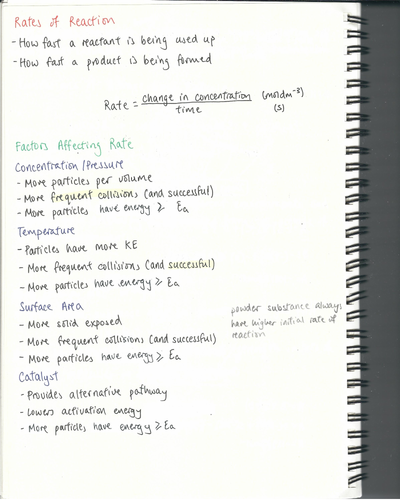 Rates of Reaction
- How fast a reactant is being used up
- How fast a product is being formed
Rate = change in concentration (moldm⁻³)
time (s)
Factors Affecting Rate
Concentration/Pressure
- More particles per volume
- More frequent collisions (and successful)
- More particles have energy ≥ Ea
Temperature
- Particles have more KE
- More frequent collisions (and successful)
- More particles have energy ≥ Ea
Surface Area
- More solid exposed
- More frequent collisions (and successful)
- More particles have energy ≥ Ea
powder substance always
have higher initial rate of
reaction
Catalyst
- Provides alternative pathway
- Lowers activation energy
- More particles have energy ≥ Ea